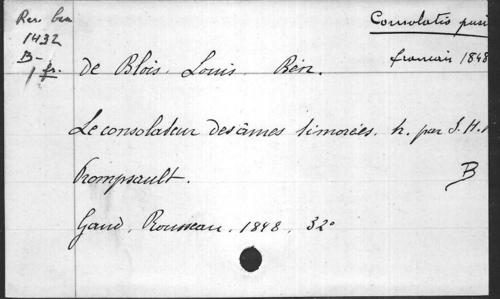 Res. ben
1432
B-
1 fr.
Consolatio pusi
francais 1848
de Blois. Louis. Bén.
Le consolateur des âmes timorées. tr. par J. H. R
Prompsault.
B
Gand. Rousseau. 1848. 32°